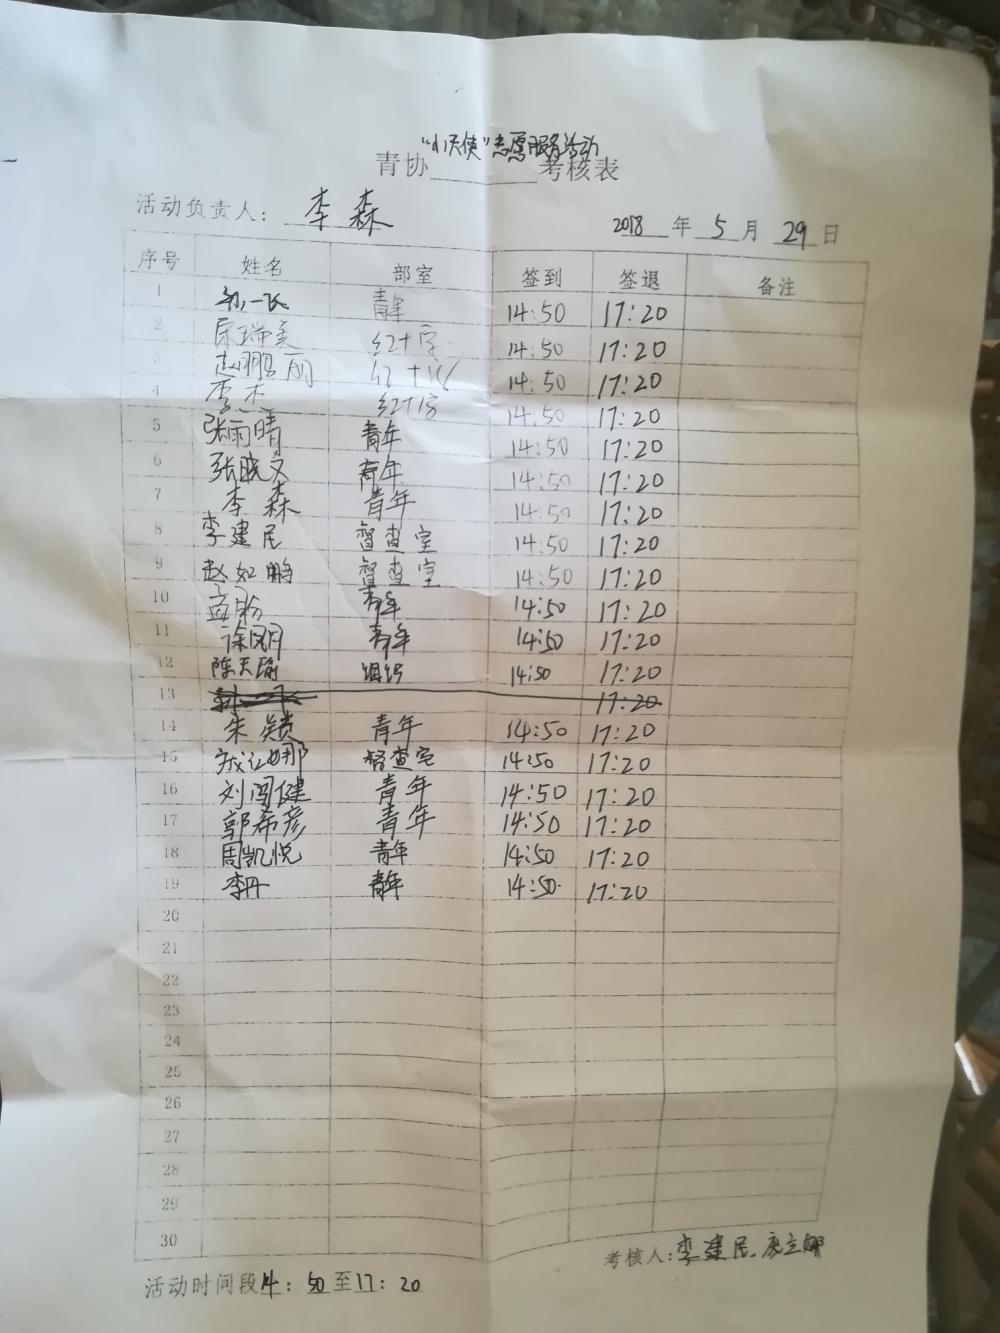 “小天使”志愿服务活动
青协 考核表
活动负责人： 李森 2018 年 5 月 29 日
序号 姓名 部室 签到 签退 备注
1 青年 14:50 17:20
2 红十字 14:50 17:20
3 赵鹏丽 红十字 14:50 17:20
4 李杰 红十字 14:50 17:20
5 张雨晴 青年 14:50 17:20
6 张晓文 青年 14:50 17:20
7 李森 青年 14:50 17:20
8 李建民 督查室 14:50 17:20
9 赵如鹏 督查室 14:50 17:20
10 青年 14:50 17:20
11 徐凤月 青年 14:50 17:20
12 陈天瑜 组织 14:50 17:20
13 17:20
14 朱赟 青年 14:50 17:20
15 督查室 14:50 17:20
16 刘闯健 青年 14:50 17:20
17 郭希彦 青年 14:50 17:20
18 周凯悦 青年 14:50 17:20
19 李丹 青年 14:50 17:20
20
21
22
23
24
25
26
27
28
29
30
考核人：李建民、
活动时间段14：50至17：20